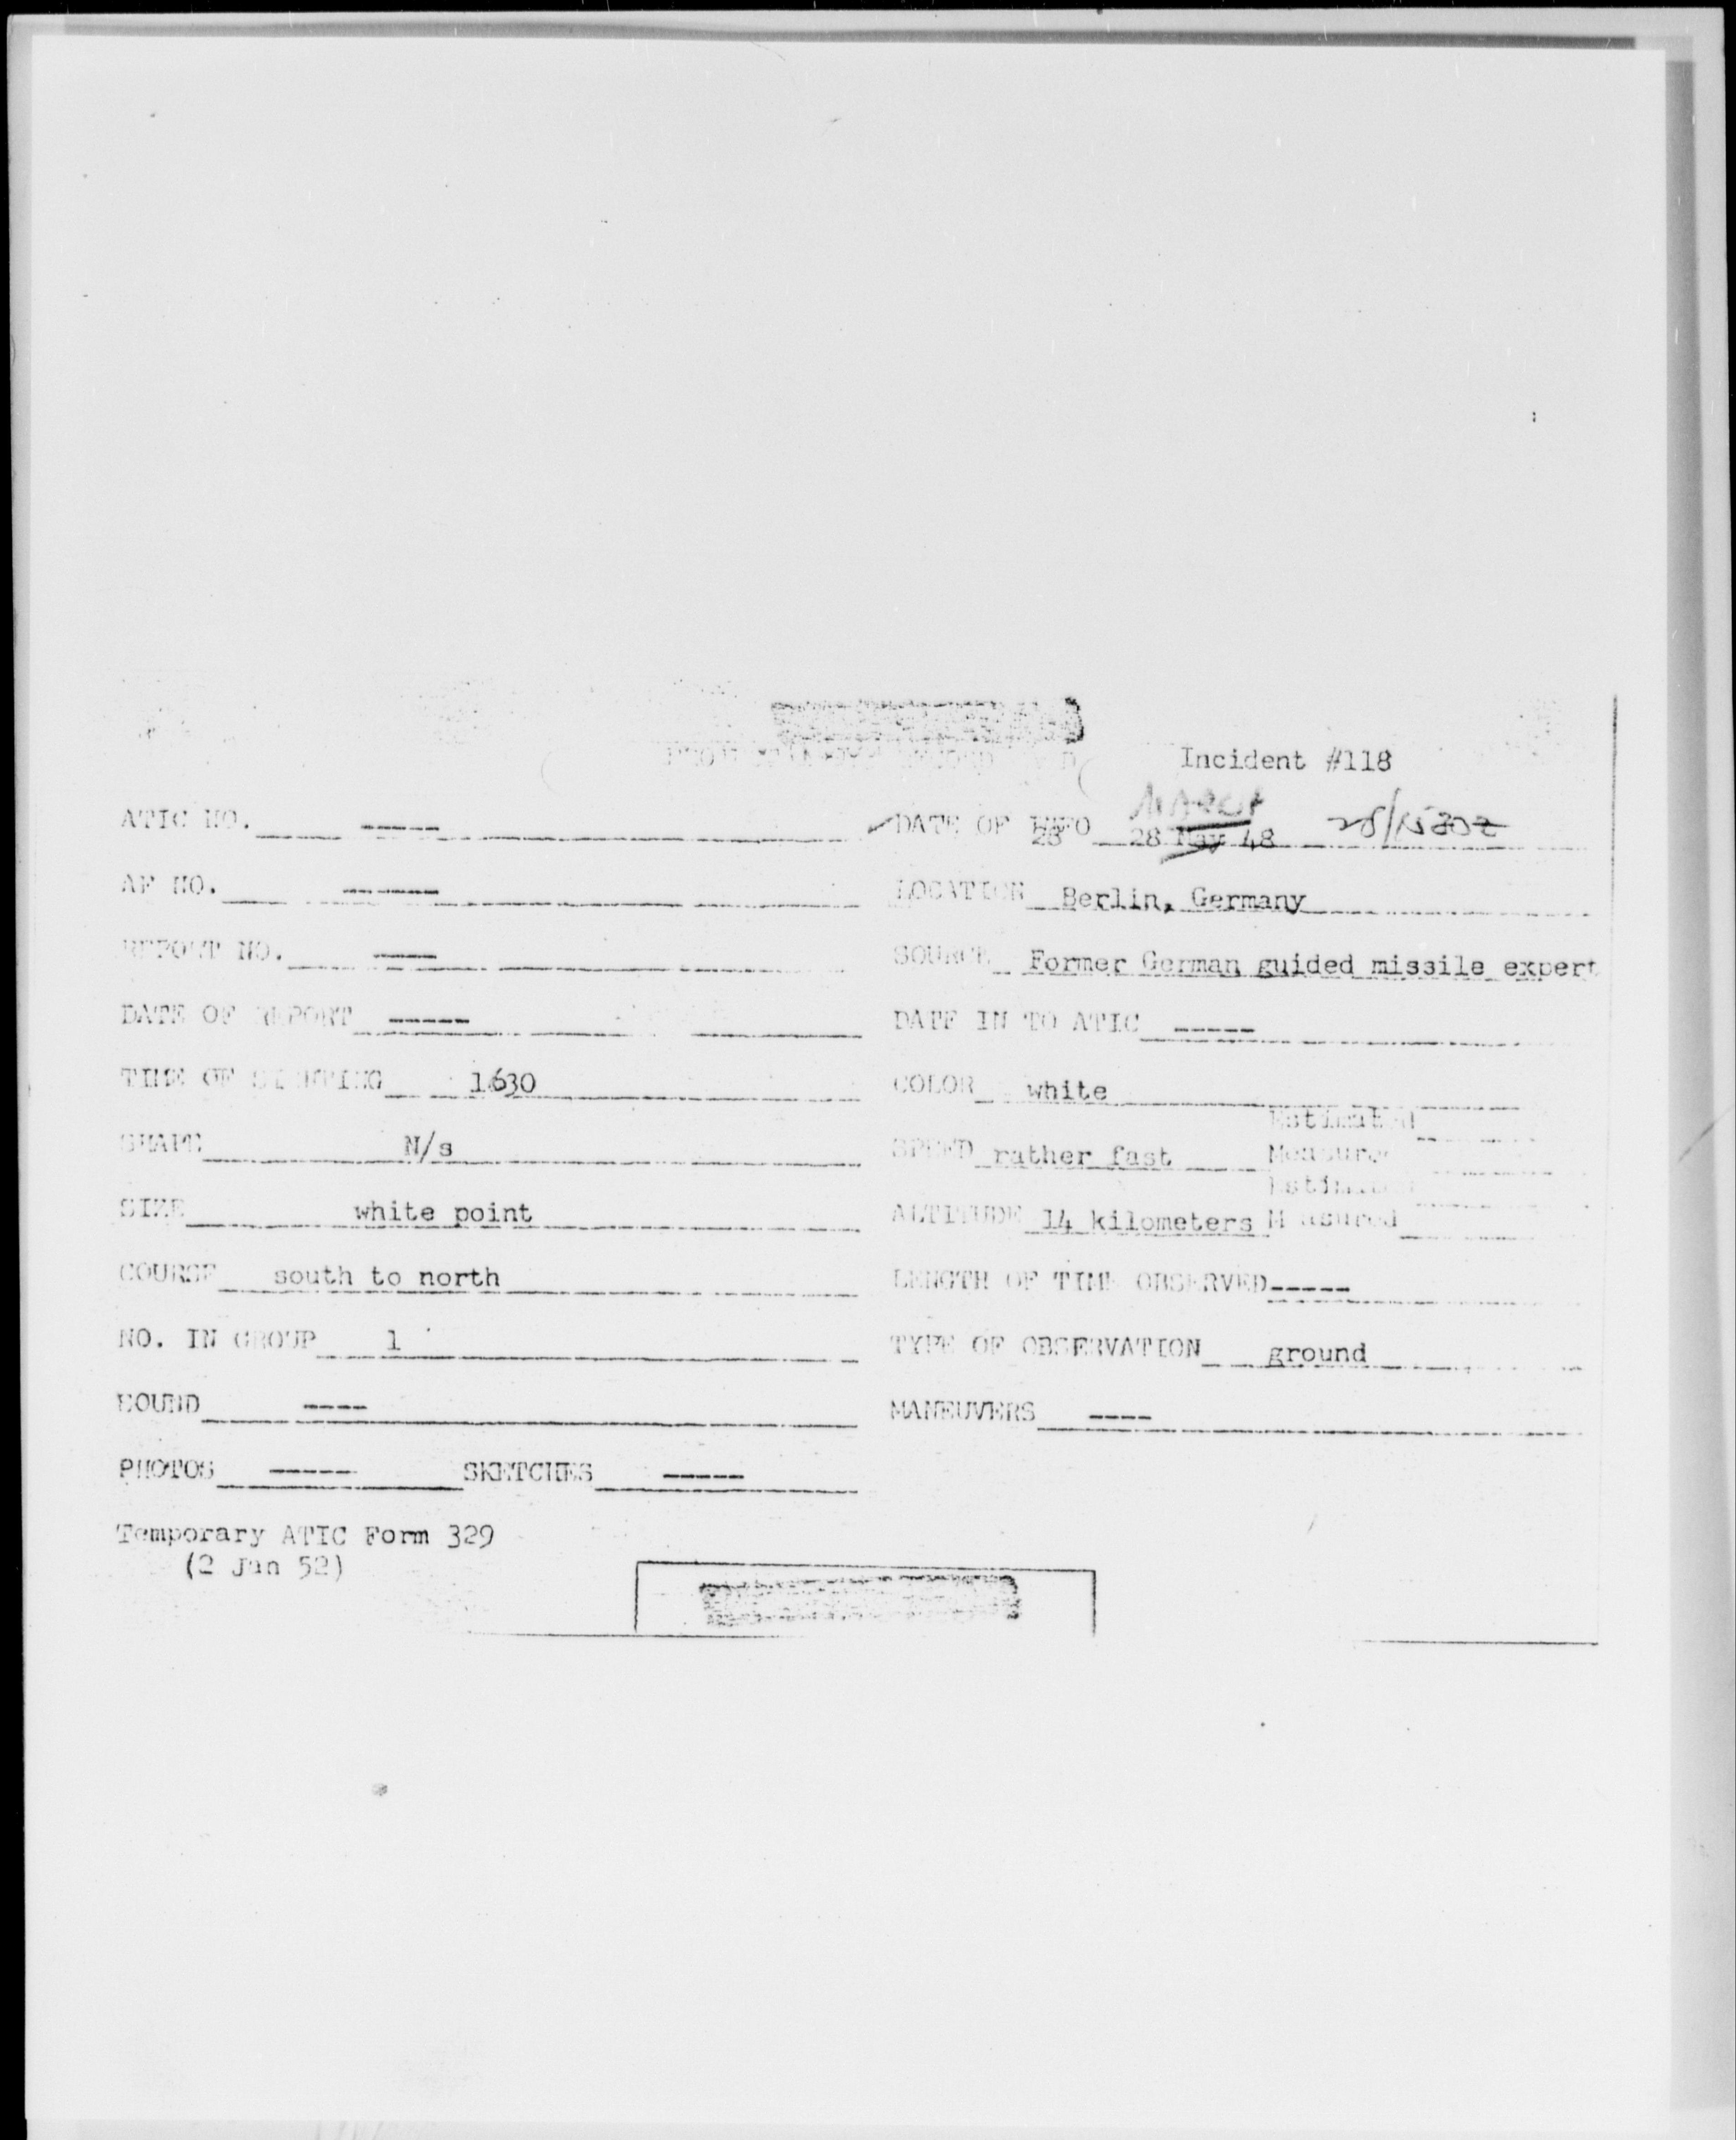 Incident #118
MARCH
ATIC NO. ----
DATE OF INFO 28 May 48 28/1530Z
AF NO. ----
LOCATION Berlin, Germany
REPORT NO. ----
SOURCE Former German guided missile expert
DATE OF REPORT -----
DATE IN TO ATIC -----
TIME OF SIGHTING 1630
COLOR white
SHAPE N/s
SPEED rather fast Estimated
Measured
SIZE white point
ALTITUDE 14 kilometers Estimated
Measured
COURSE south to north
LENGTH OF TIME OBSERVED -----
NO. IN GROUP 1
TYPE OF OBSERVATION ground
SOUND ----
MANEUVERS ----
PHOTOS ----- SKETCHES -----
Temporary ATIC Form 329
(2 Jan 52)